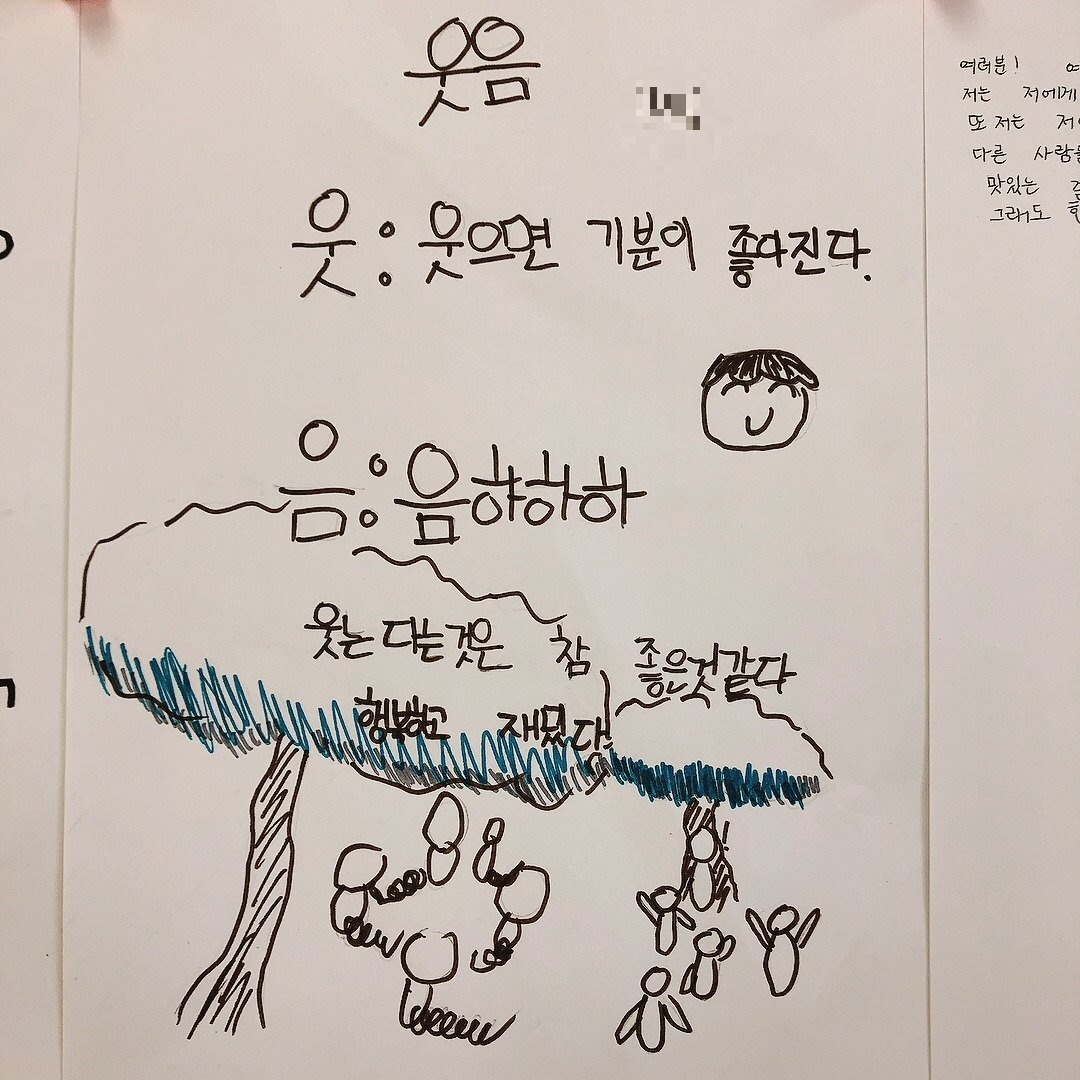 웃음
웃 : 웃으면 기분이 좋아진다.
음 : 음햐하하
웃는 다는것은 참 좋은것같다
행복하고 재밌다!
여러분!
저는 저에게
또 저는
다른 사람을
맛있는
그래도